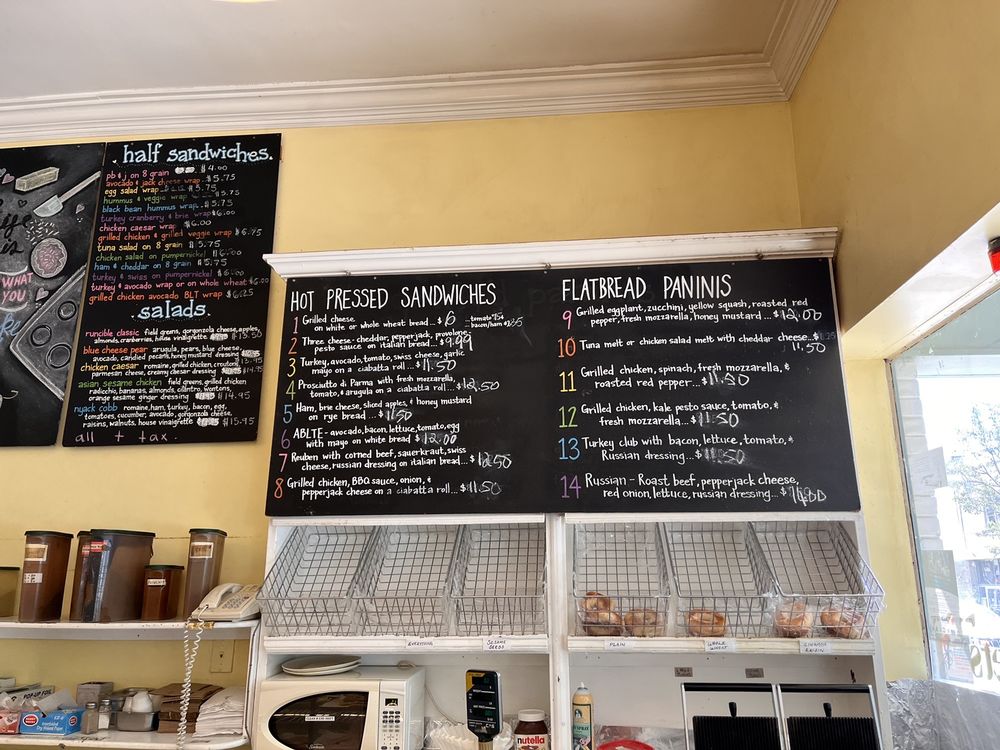 WHAT
YOU
half sandwiches.
pb & j on 8 grain $4.00
avocado & jack cheese wrap $5.75
egg salad wrap $5.75
hummus & veggie wrap $5.75
black bean hummus wrap $5.75
turkey cranberry & brie wrap $6.00
chicken caesar wrap $6.00
grilled chicken & grilled veggie wrap $6.75
tuna salad on 8 grain $5.75
chicken salad on pumpernickel $6.00
ham & cheddar on 8 grain $5.75
turkey & swiss on pumpernickel $6.00
turkey & avocado wrap or on whole wheat $6.00
grilled chicken avocado BLT wrap
salads.
runcible classic field greens, gorgonzola cheese, apples,
almonds, cranberries, house vinaigrette
blue cheese pear arugula, pears, blue cheese,
avocado, candied pecans, honey mustard dressing
chicken caesar romaine, grilled chicken, croutons,
parmesan cheese, creamy caesar dressing
asian sesame chicken field greens, grilled chicken
radicchio, bananas, almonds, cilantro, wontons,
orange sesame ginger dressing $14.95
nyack cobb romaine, ham, turkey, bacon, egg,
tomatoes, cucumber, avocado, gorgonzola cheese,
raisins, walnuts, house vinaigrette $15.95
all + tax.
HOT PRESSED SANDWICHES
1 Grilled cheese
on white or whole wheat bread... $6 ...tomato
...bacon/ham
2 Three cheese- cheddar, pepperjack, provolone,
pesto sauce on italian bread... $9.99
3 Turkey, avocado, tomato, swiss cheese, garlic
mayo on a ciabatta roll... $11.50
4 Prosciutto di Parma with fresh mozzarella,
tomato, & arugula on a ciabatta roll... $12.50
5 Ham, brie cheese, sliced apples, & honey mustard
on rye bread... $11.50
6 ABLTE - avocado, bacon, lettuce, tomato, egg
with mayo on white bread $12.00
7 Reuben with corned beef, sauerkraut, swiss
cheese, russian dressing on italian bread... $12.50
8 Grilled chicken, BBQ sauce, onion, &
pepperjack cheese on a ciabatta roll... $11.50
FLATBREAD PANINIS
9 Grilled eggplant, zucchini, yellow squash, roasted red
pepper, fresh mozzarella, honey mustard... $12.00
10 Tuna melt or chicken salad melt with cheddar cheese...
11.50
11 Grilled chicken, spinach, fresh mozzarella, &
roasted red pepper... $11.50
12 Grilled chicken, kale pesto sauce, tomato, &
fresh mozzarella... $11.50
13 Turkey club with bacon, lettuce, tomato, &
Russian dressing... $11.50
14 Russian - Roast beef, pepperjack cheese,
red onion, lettuce, russian dressing... $
EVERYTHING
SESAME
SEEDS
PLAIN
WHOLE
WHEAT
CINNAMON
RAISIN
POP-UP FOIL
nutella